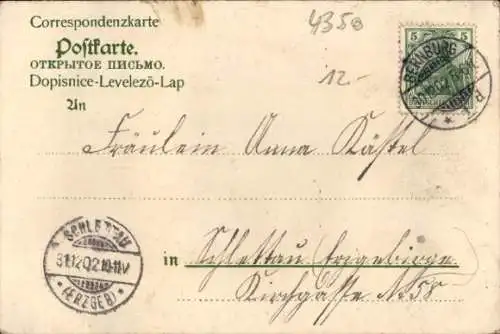 Correspondenzkarte
Postkarte.
ОТКРЫТОЕ ПИСЬМО.
Dopisnice-Levelező-Lap
An
4358
12.-
5 5
BERNBURG
Fräulein Anna Kästel
SCHLETTAU
31.12.02.10-11V
*(ERZGEB)*
in Schlettau (Erzgebirge)
Kirchgasse No 58